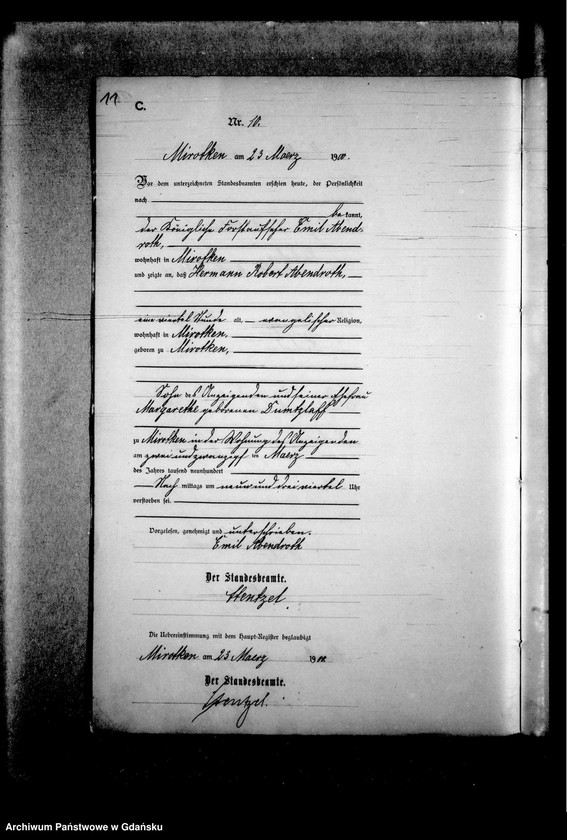 11
C.
Nr. 10.
Mirotken am 23 Maerz 1900.
Vor dem unterzeichneten Standesbeamten erschien heute, der Persönlichkeit
nach
bekannt,
der Königliche Forstaufseher Emil Abend-
roth,
wohnhaft in Mirotken
und zeigte an, daß Hermann Robert Abendroth,
eine viertel Stunde alt, evangelischer Religion,
wohnhaft in Mirotken,
geboren zu Mirotken,
Sohn des Anzeigenden und seiner Ehefrau
Margarethe geborenen Dumtzlaff
zu Mirotken in der Wohnung des Anzeigenden
am zwei und zwanzigst ten Maerz
des Jahres tausend neunhundert
Nach mittags um neun und drei viertel Uhr
verstorben sei.
Vorgelesen, genehmigt und unterschrieben.
Emil Abendroth
Der Standesbeamte.
Hentzel.
Die Uebereinstimmung mit dem Haupt-Register beglaubigt
Mirotken am 23 Maerz 1900.
Der Standesbeamte.
Hentzel.
Archiwum Państwowe w Gdańsku